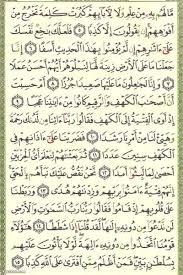 مَّا لَهُم بِهِۦ مِنْ عِلْمٍ وَلَا لِءَابَآئِهِمْ كَبُرَتْ كَلِمَةً تَخْرُجُ مِنْ
أَفْوَٰهِهِمْ إِن يَقُولُونَ إِلَّا كَذِبًا ٥ فَلَعَلَّكَ بَٰخِعٌ نَّفْسَكَ
عَلَىٰٓ ءَاثَٰرِهِمْ إِن لَّمْ يُؤْمِنُوا۟ بِهَٰذَا ٱلْحَدِيثِ أَسَفًا ٦ إِنَّا
جَعَلْنَا مَا عَلَى ٱلْأَرْضِ زِينَةً لَّهَا لِنَبْلُوَهُمْ أَيُّهُمْ أَحْسَنُ عَمَلًا
٧ وَإِنَّا لَجَٰعِلُونَ مَا عَلَيْهَا صَعِيدًا جُرُزًا ٨ أَمْ حَسِبْتَ
أَنَّ أَصْحَٰبَ ٱلْكَهْفِ وَٱلرَّقِيمِ كَانُوا۟ مِنْ ءَايَٰتِنَا عَجَبًا ٩
إِذْ أَوَى ٱلْفِتْيَةُ إِلَى ٱلْكَهْفِ فَقَالُوا۟ رَبَّنَآ ءَاتِنَا مِن لَّدُنكَ رَحْمَةً
وَهَيِّئْ لَنَا مِنْ أَمْرِنَا رَشَدًا ١٠ فَضَرَبْنَا عَلَىٰٓ ءَاذَانِهِمْ فِى
ٱلْكَهْفِ سِنِينَ عَدَدًا ١١ ثُمَّ بَعَثْنَٰهُمْ لِنَعْلَمَ أَىُّ ٱلْحِزْبَيْنِ
أَحْصَىٰ لِمَا لَبِثُوٓا۟ أَمَدًا ١٢ نَّحْنُ نَقُصُّ عَلَيْكَ نَبَأَهُم بِٱلْحَقِّ
إِنَّهُمْ فِتْيَةٌ ءَامَنُوا۟ بِرَبِّهِمْ وَزِدْنَٰهُمْ هُدًى ١٣ وَرَبَطْنَا
عَلَىٰ قُلُوبِهِمْ إِذْ قَامُوا۟ فَقَالُوا۟ رَبُّنَا رَبُّ ٱلسَّمَٰوَٰتِ وَٱلْأَرْضِ
لَن نَّدْعُوَا۟ مِن دُونِهِۦٓ إِلَٰهًا لَّقَدْ قُلْنَآ إِذًا شَطَطًا ١٤ هَٰٓؤُلَآءِ
قَوْمُنَا ٱتَّخَذُوا۟ مِن دُونِهِۦٓ ءَالِهَةً لَّوْلَا يَأْتُونَ عَلَيْهِم
بِسُلْطَٰنٍۭ بَيِّنٍ فَمَنْ أَظْلَمُ مِمَّنِ ٱفْتَرَىٰ عَلَى ٱللَّهِ كَذِبًا ١٥